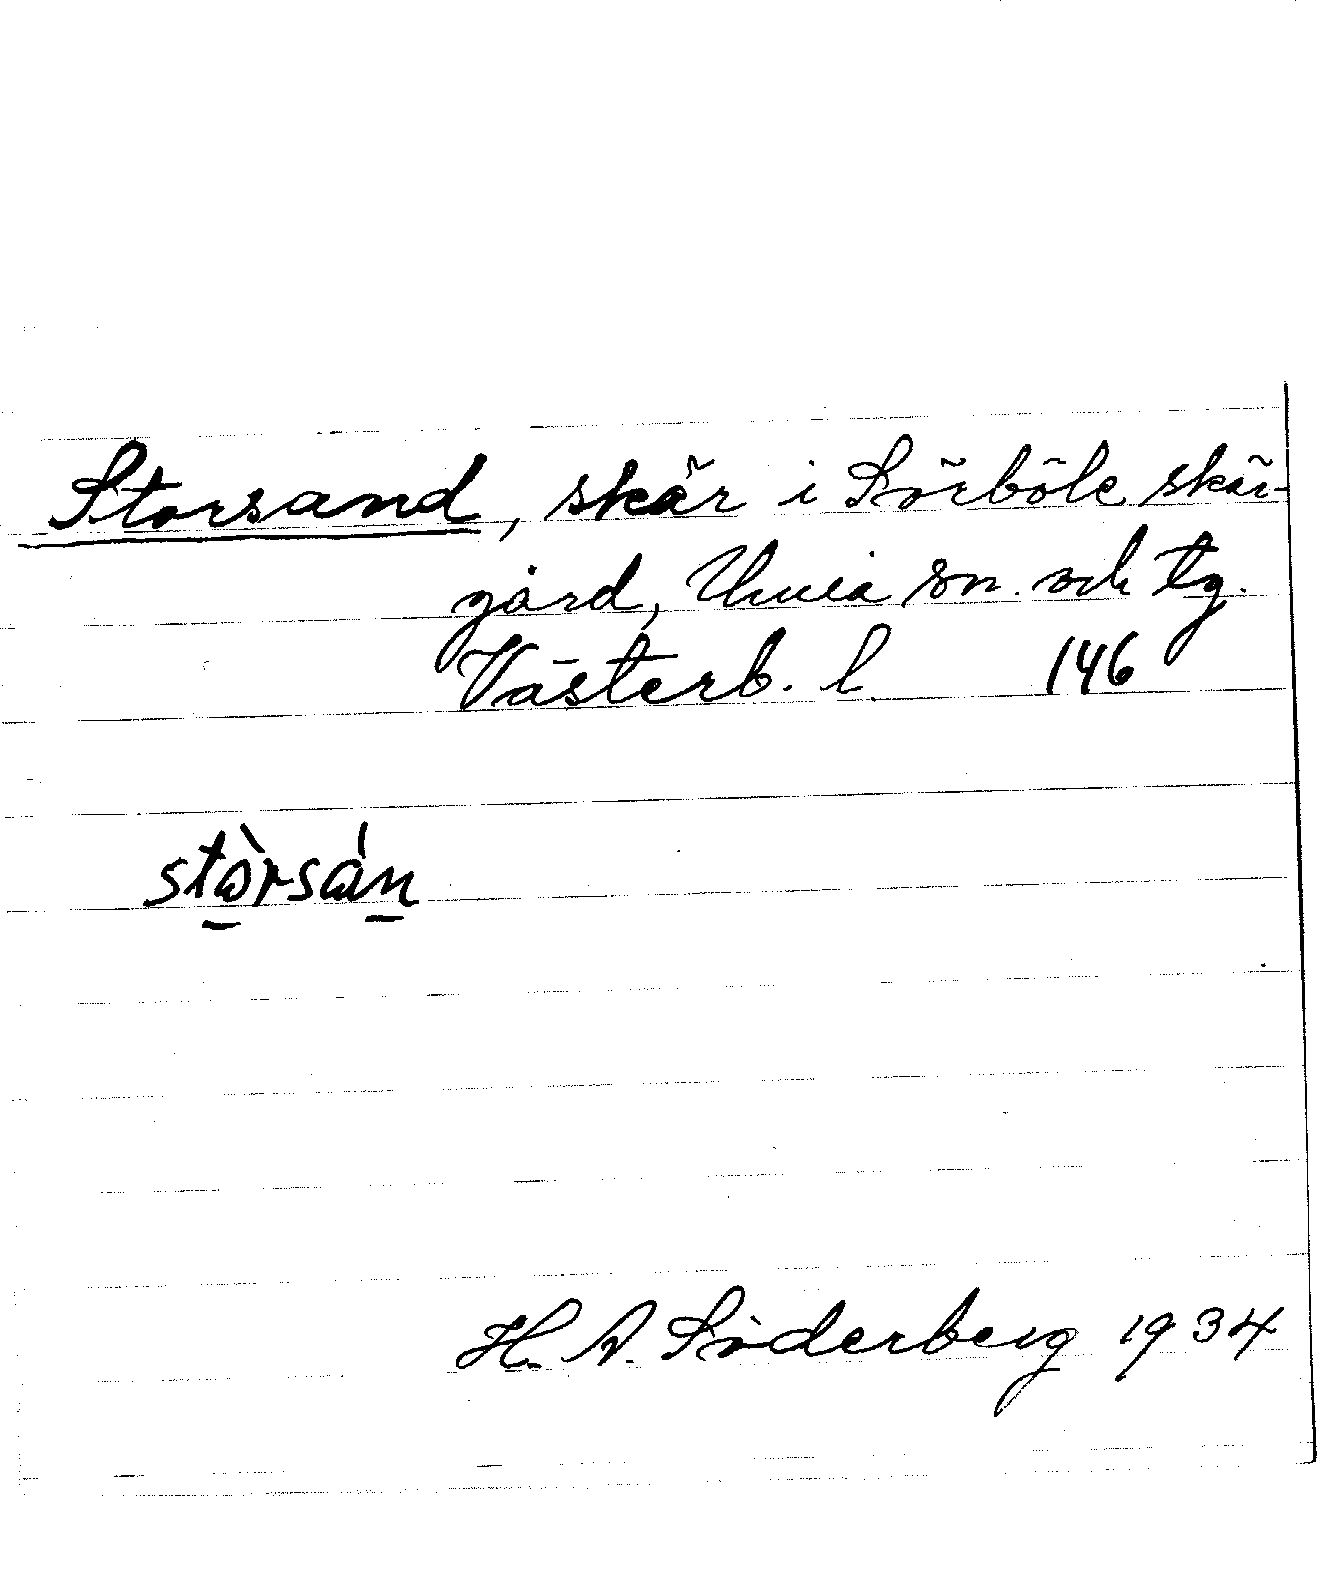 Storsand, skär i Sörböle skär-
gård, Umeå sn. och tg.
Västerb. l. 146
stòrsán
H. A. Söderberg 1934